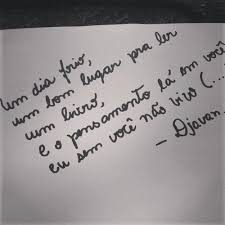 um dia frio,
um bom lugar pra ler
um livro,
e o pensamento lá em você
eu sem você não vivo (...
- Djavan.